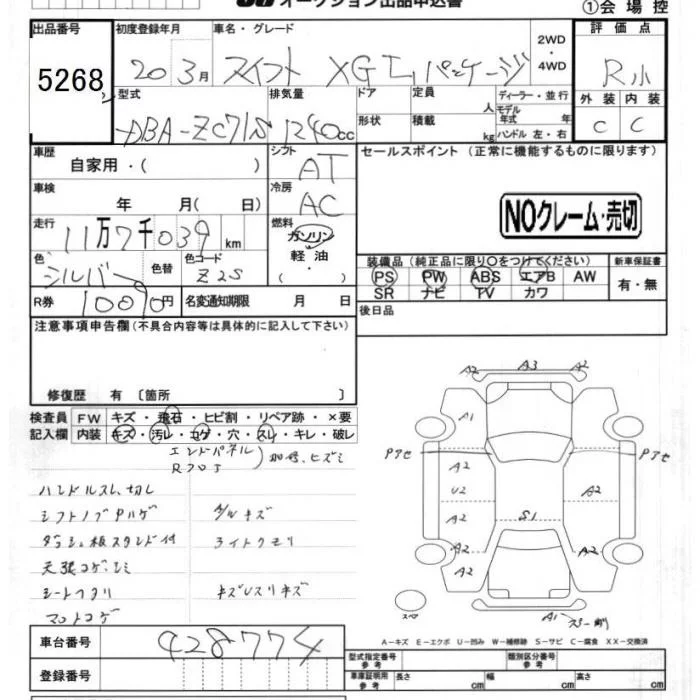 オークション出品申込書
①会場控
出品番号 初度登録年月 車名・グレード 2WD・4WD 評価点
5268 20年3月 スイフト XG Lパッケージ R小
型式 排気量 ドア 定員 人 ディーラー・並行 外装 内装
DBA-ZC71S 1240cc 形状 積載 kg モデル年式 年 ハンドル 左・右 C C
車歴 自家用・( ) シフト AT セールスポイント (正常に機能するものに限ります)
車検 年 月( 日) 冷房 AC
NOクレーム・売切
走行 11万7千039km 燃料 ガソリン・軽油・( )
色 シルバー 色替 色コード Z2S
装備品(純正品に限り○をつけてください) 新車保証書
PS PW ABS エアB AW 有・無
SR ナビ TV カワ
R券 10090円 名変通知期限 月 日 後日品
注意事項申告欄(不具合内容等は具体的に記入して下さい)
修復歴 有〔箇所 〕
検査員記入欄 FW キズ・飛石・ヒビ割・リペア跡・×要
内装 キズ・汚レ・コゲ・穴・スレ・キレ・破レ
エンドパネル
Rフロア
ハンドルスレ、切レ
シフトノブ ハゲ アルキズ
ダッシュ板スタンド付 ライトクモリ
天張コゲ、シミ
シートコゲ キズUスリキズ
マットコゲ
A2 A3 A2
A1
Pアセ Pアセ
A2
U2 A2
A2 S1
A2 A2
スペア A1
A－キズ E－エクボ U－凹み W－補修跡 S－サビ C－腐食 XX－交換済
車台番号 428774
登録番号
型式指定番号 参考 類別区分番号 参考
車庫証明用 参考 長さ cm 幅 cm 高さ cm